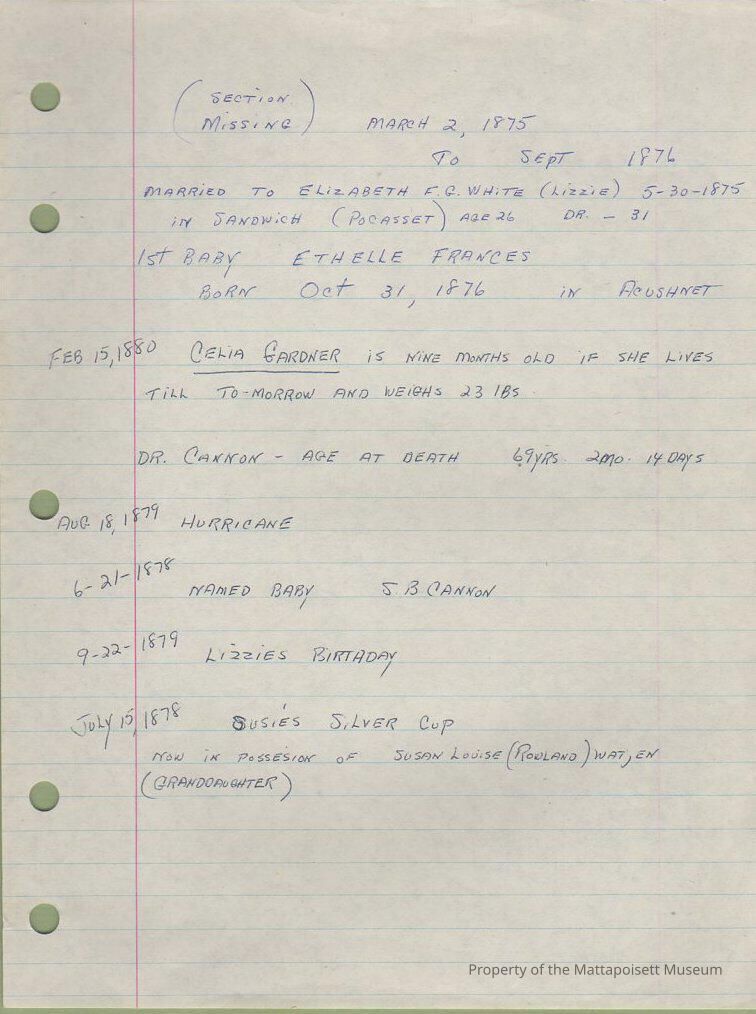 (SECTION
MISSING) MARCH 2, 1875
TO SEPT 1876
MARRIED TO ELIZABETH F.G. WHITE (LIZZIE) 5-30-1875
IN SANDWICH (POCASSET) AGE 26 DR. - 31
1st BABY ETHELLE FRANCES
BORN Oct 31, 1876 IN ACUSHNET
FEB 15, 1880 CELIA GARDNER IS NINE MONTHS OLD IF SHE LIVES
TILL TO-MORROW AND WEIGHS 23 lBS.
DR. CANNON - AGE AT DEATH 69 YRS. 2 MO. 14 DAYS
AUG 18, 1879 HURRICANE
6-21-1878 NAMED BABY S.B CANNON
9-22-1879 LIZZIES BIRTHDAY
JULY 15, 1878 SUSIE'S SILVER CUP
NOW IN POSSESION OF SUSAN LOUISE (ROWLAND)
(GRANDDAUGHTER)
Property of the Mattapoisett Museum